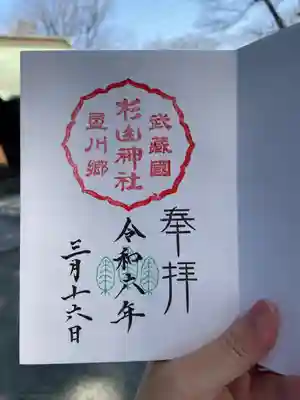 武藏國
杉山神社
星川郷
奉拝
令和六年
三月十六日